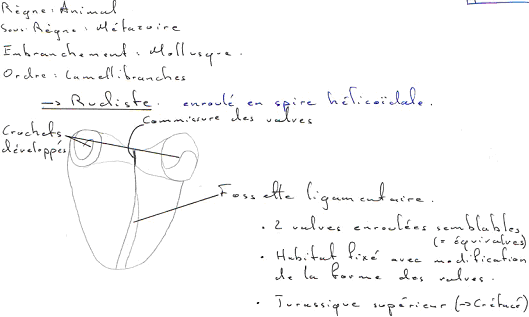 Règne : Animal
Sous-Règne : Métazoaire
Embranchement : Mollusque.
Ordre : Lamellibranches
→ Rudiste. enroulé en spire hélicoïdale.
Commissure des valves
Crochets
développés
Fossette ligamentaire.
• 2 valves enroulées semblables
(= équivalves)
• Habitat fixé avec modification
de la forme des valves.
• Jurassique supérieur (→ Crétacé)